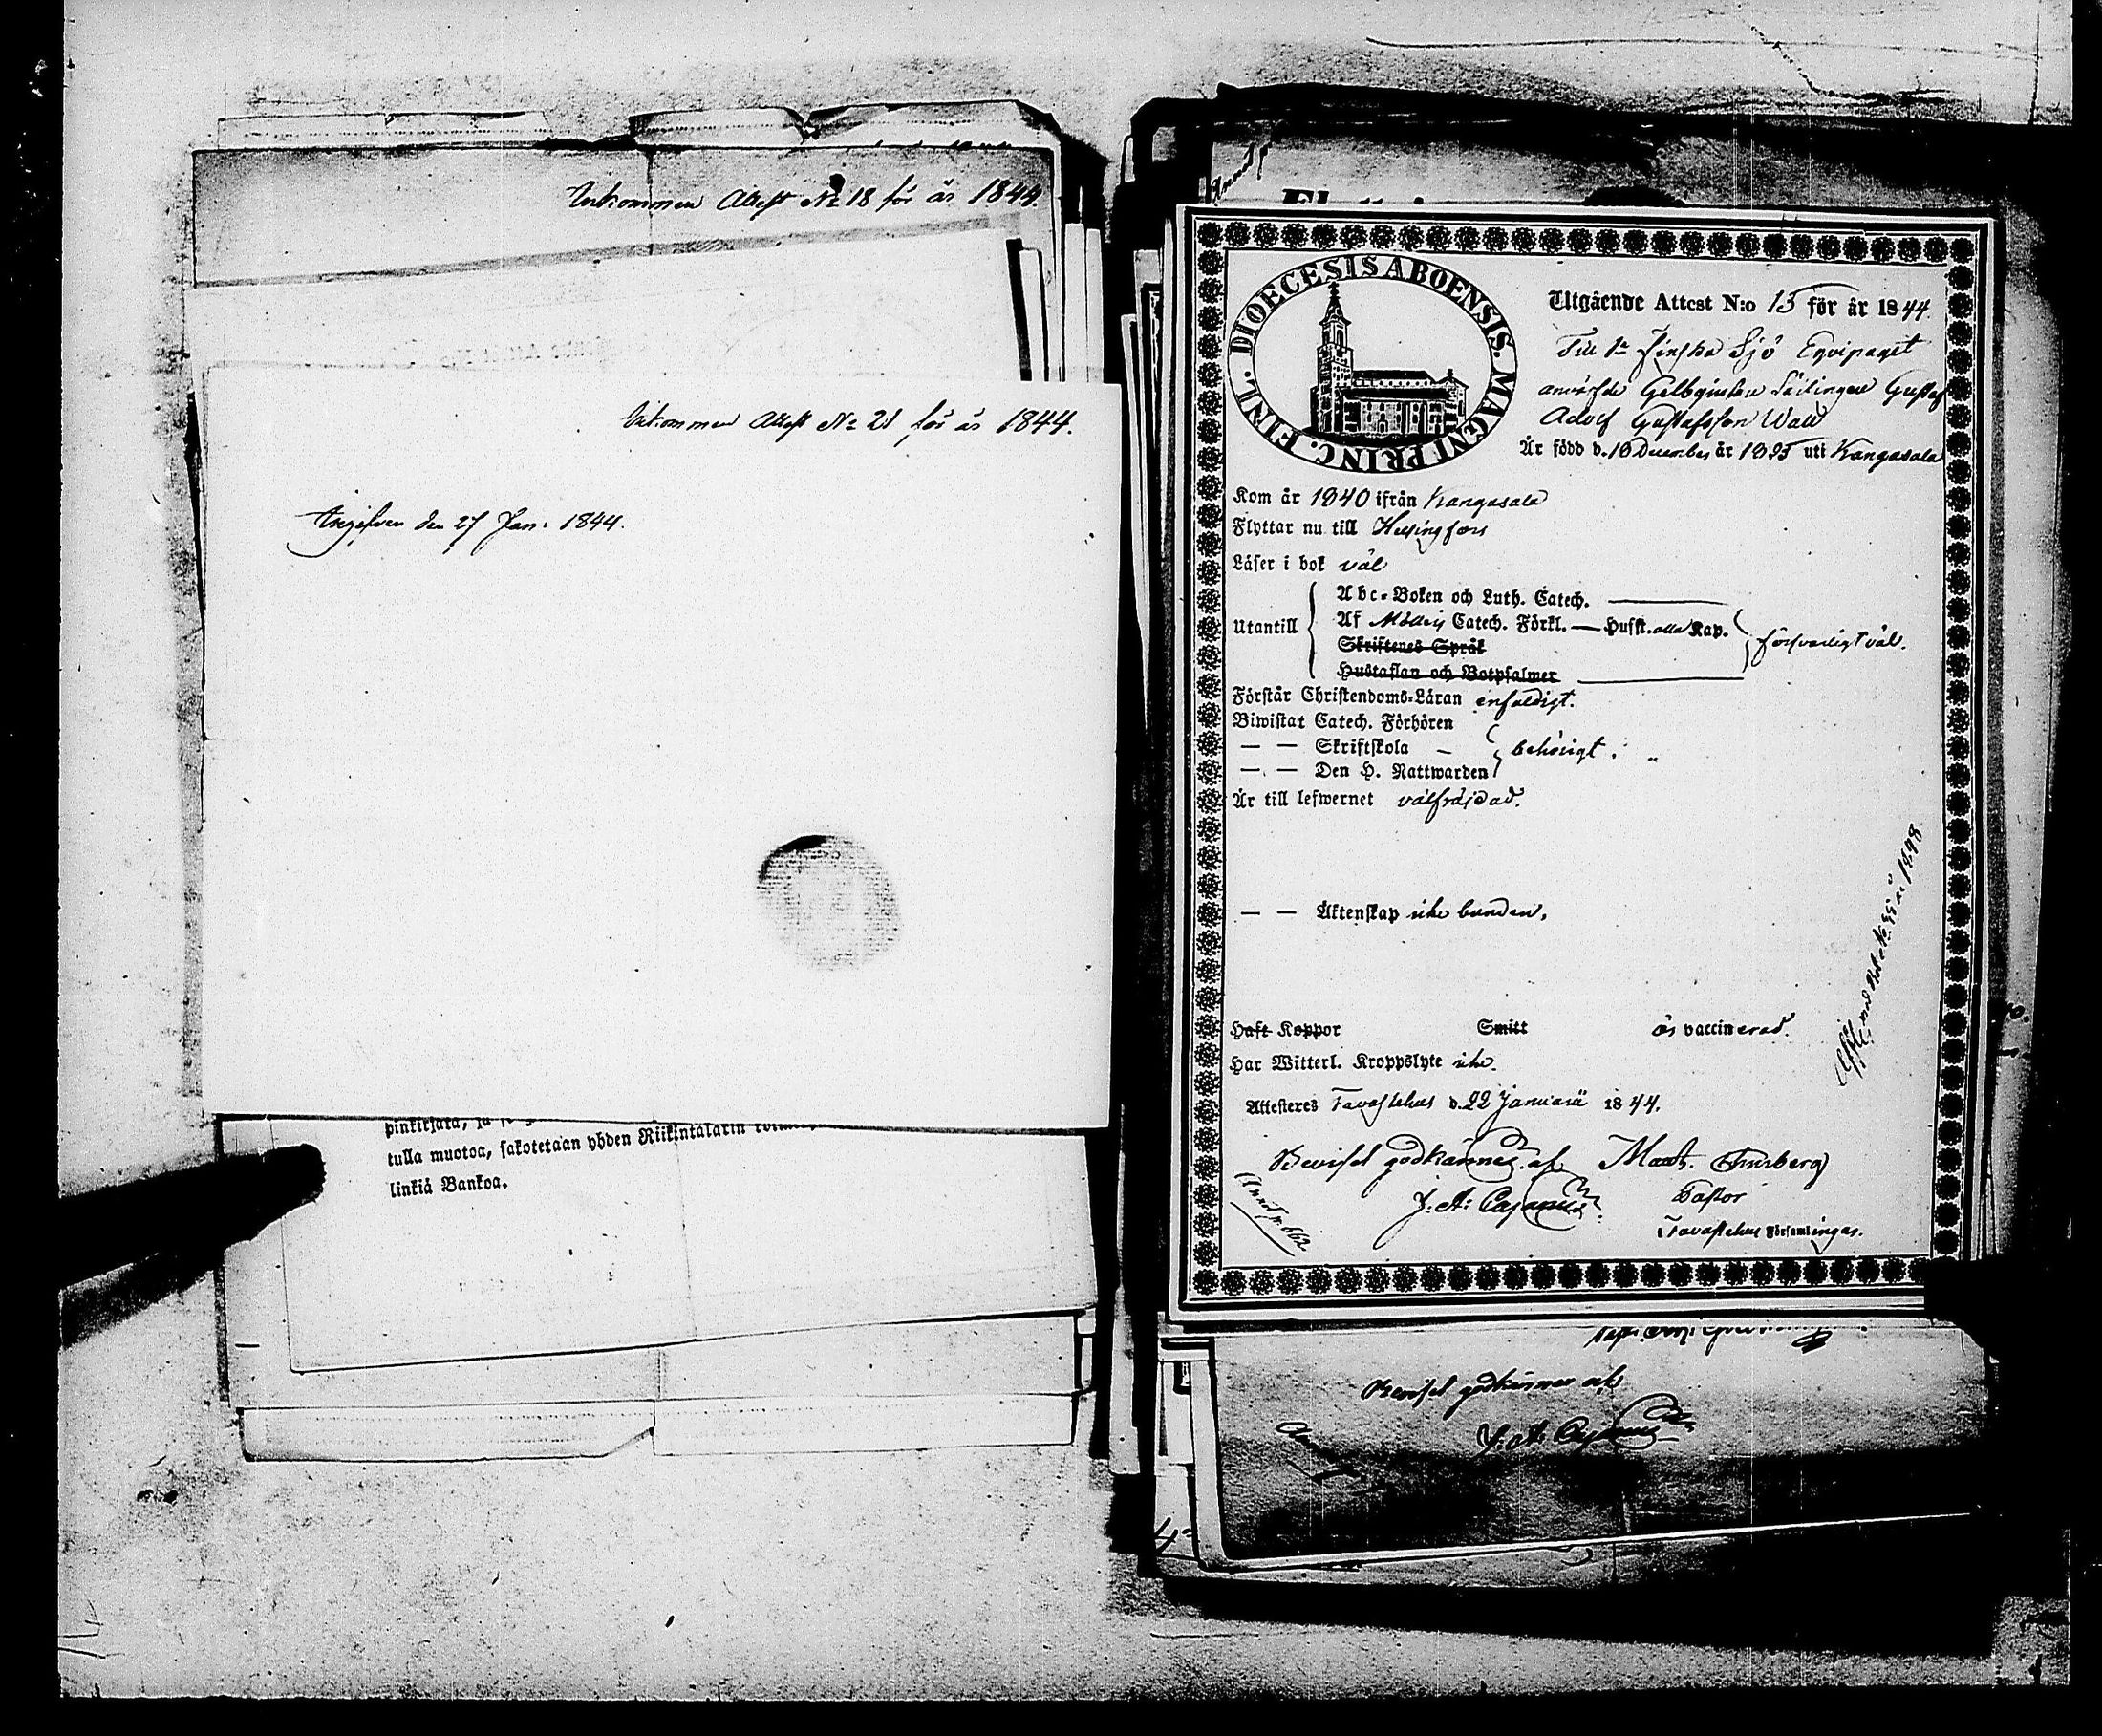 Inkommen Attest No 18 för år 1844.
Inkommen Attest No 21 för år 1844.
Ingifven den 27 Jan. 1844.
tulla muotoa, sakotetaan yhden Riikintalarin
linkiä Bankoa.
DIOECESIS ABOENSIS. MAGNI PRINC. FINL.
Utgående Attest N:o 15 för år 1844.
Till 1a Finska Sjö Equipaget
anvärfde Gelbgjutare Lärlingen Gustaf
Adolf Gustafsson Wall
Är född d. 18 December år 1825 uti Kangasala
Kom år 1840 ifrån Kangasala
Flyttar nu till Helsingfors
Läser i bok väl
Utantill
Abc-Boken och Luth. Catech.
Af Möllers Catech. Förkl. — Hufst. alla Kap.
försvarligt väl.
Skriftenes Språk
Hustaflan och Botpsalmer
Förstår Christendoms-Läran enfaldigt.
Biwistat Catech. Förhören
— — Skriftskola
behörigt.
— — Den H. Nattwarden
Är till lefwernet välfräjdad.
— — Äktenskap icke bunden.
Haft Koppor Smitt är vaccinerad.
Har Witterl. Kroppslyte icke.
Attesteres Tavastehus d. 22 Januarii 1844.
Beviset godkännes af Math.
J. A. Cajanus Pastor
Tavastehus Församlingar.
år 1848
Beviset godkännes af
J. A. Cajanus